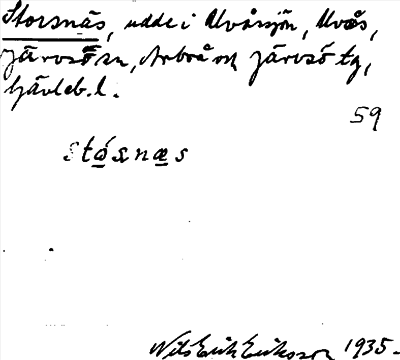 Storsnäs, udde i Uvåssjön, Uvås,
Järvsö sn, Arbrå och Järvsö tg,
Gävleb. l.
59
stósnæs
Nils Erik Eriksson 1935.